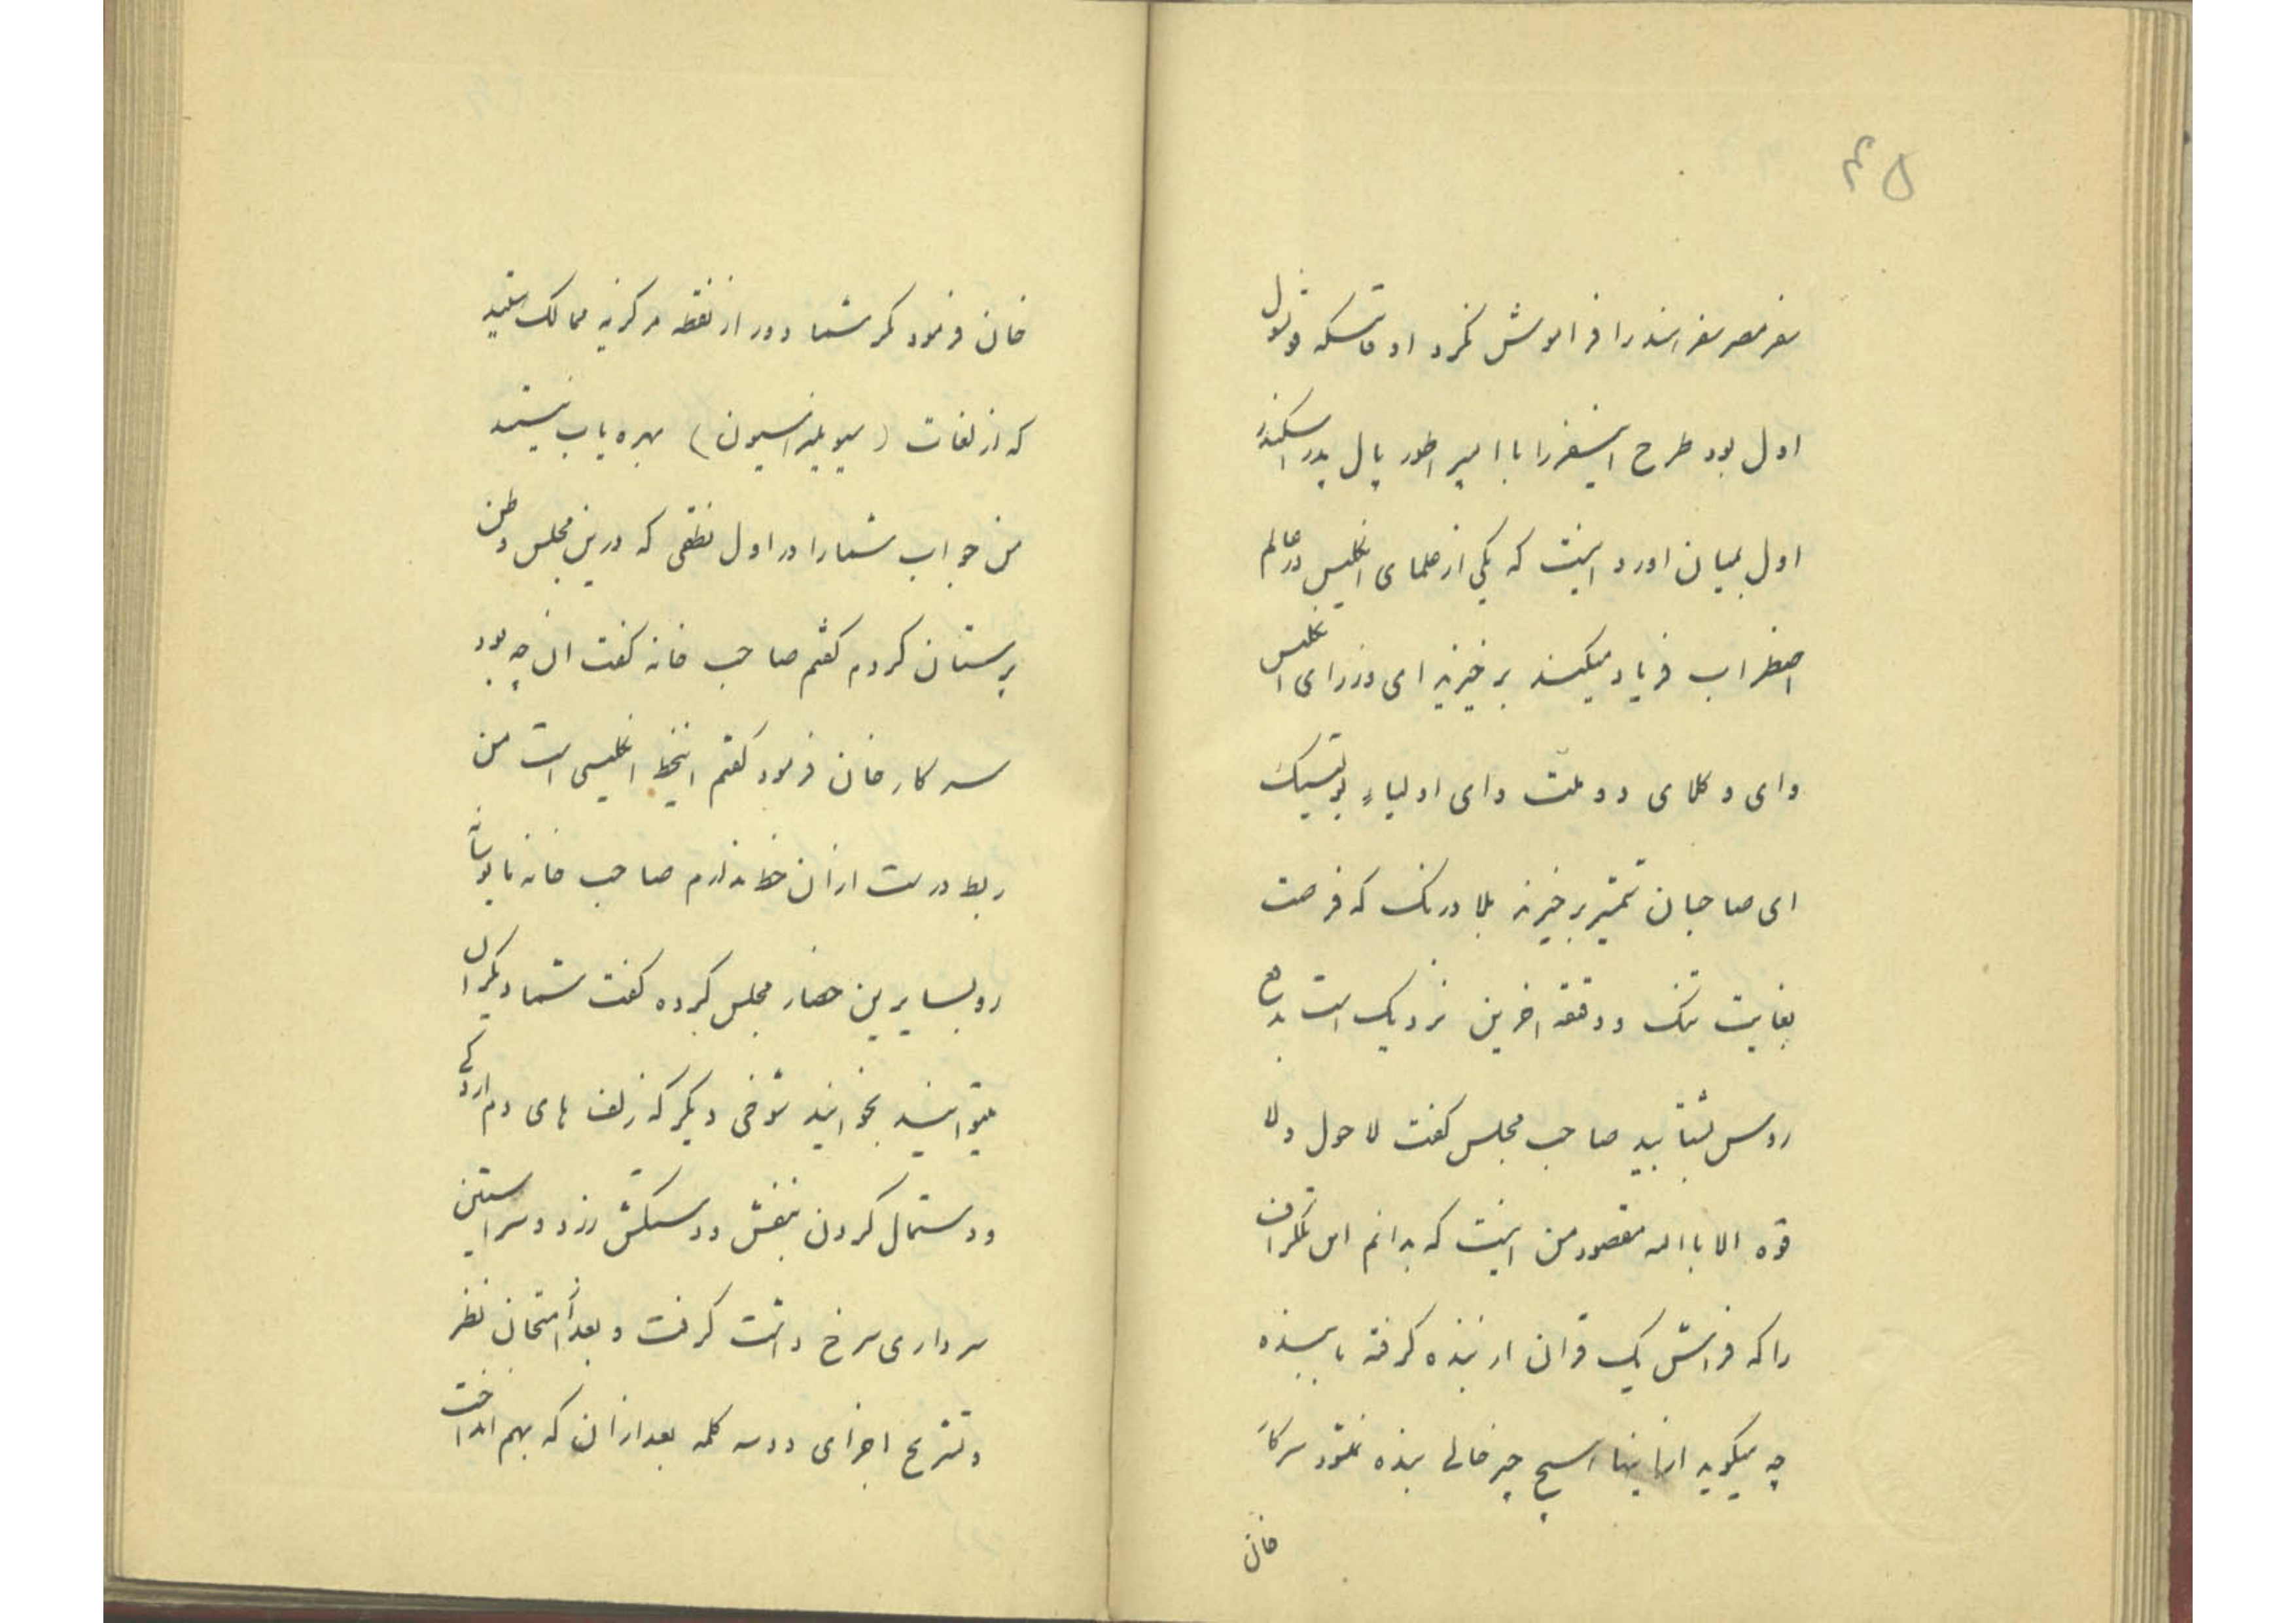 ۴۵
سفر مصر سفر هند را فراموش نکرد اوقاتیکه قونسول
اول بود طرح اینسفر را با امپراطور پال پدر اسکندر
اول بمیان اورد اینست که یکی از علمای انگلیس در عالم
اضطراب فریاد میکند برخیزید ای وزرای انگلیس
و ای وکلای دو ملت و ای اولیاء پولتیک
ای صاحبان تمیز برخیزید بلا درنک که فرصت
بغایت تنک و دقیقه اخرین نزدیک است بدفع
روس بشتابید صاحب مجلس گفت لا حول ولا
قوه الا باالله مقصود من اینست که بدانم این تلگراف
را که فراش یک قران از بنده گرفته بابنده
چه میگوید ازاینها هیچ چیز حالی بنده نمیشود سرکار
خان
خان فرمود مکر شما دور از نقطه مرکزیه ممالک هستید
که از لغات (سیویلیزاسیون) بهره یاب نیستید
من جواب شما را در اول نطقی که درین مجلس وطن
پرستان کردم گفتم صاحب خانه گفت ان چه بود
سرکار خان فرمود گفتم اینخط انگلیسی است من
ربط درست ازان خط ندارم صاحب خانه مایوسانه
رو بسایرین حضار مجلس کرده گفت شما دیگر ان
میتوانید بخوانید شوخی دیگر که زلف های دم اردکی
و دستمال گردن بنفش و دستکش زرد و سر استین
سرداری سرخ داشت گرفت و بعد از امتحان نظر
و تشریح اجزای دو سه کلمه بعد ازان که بهم انداخت